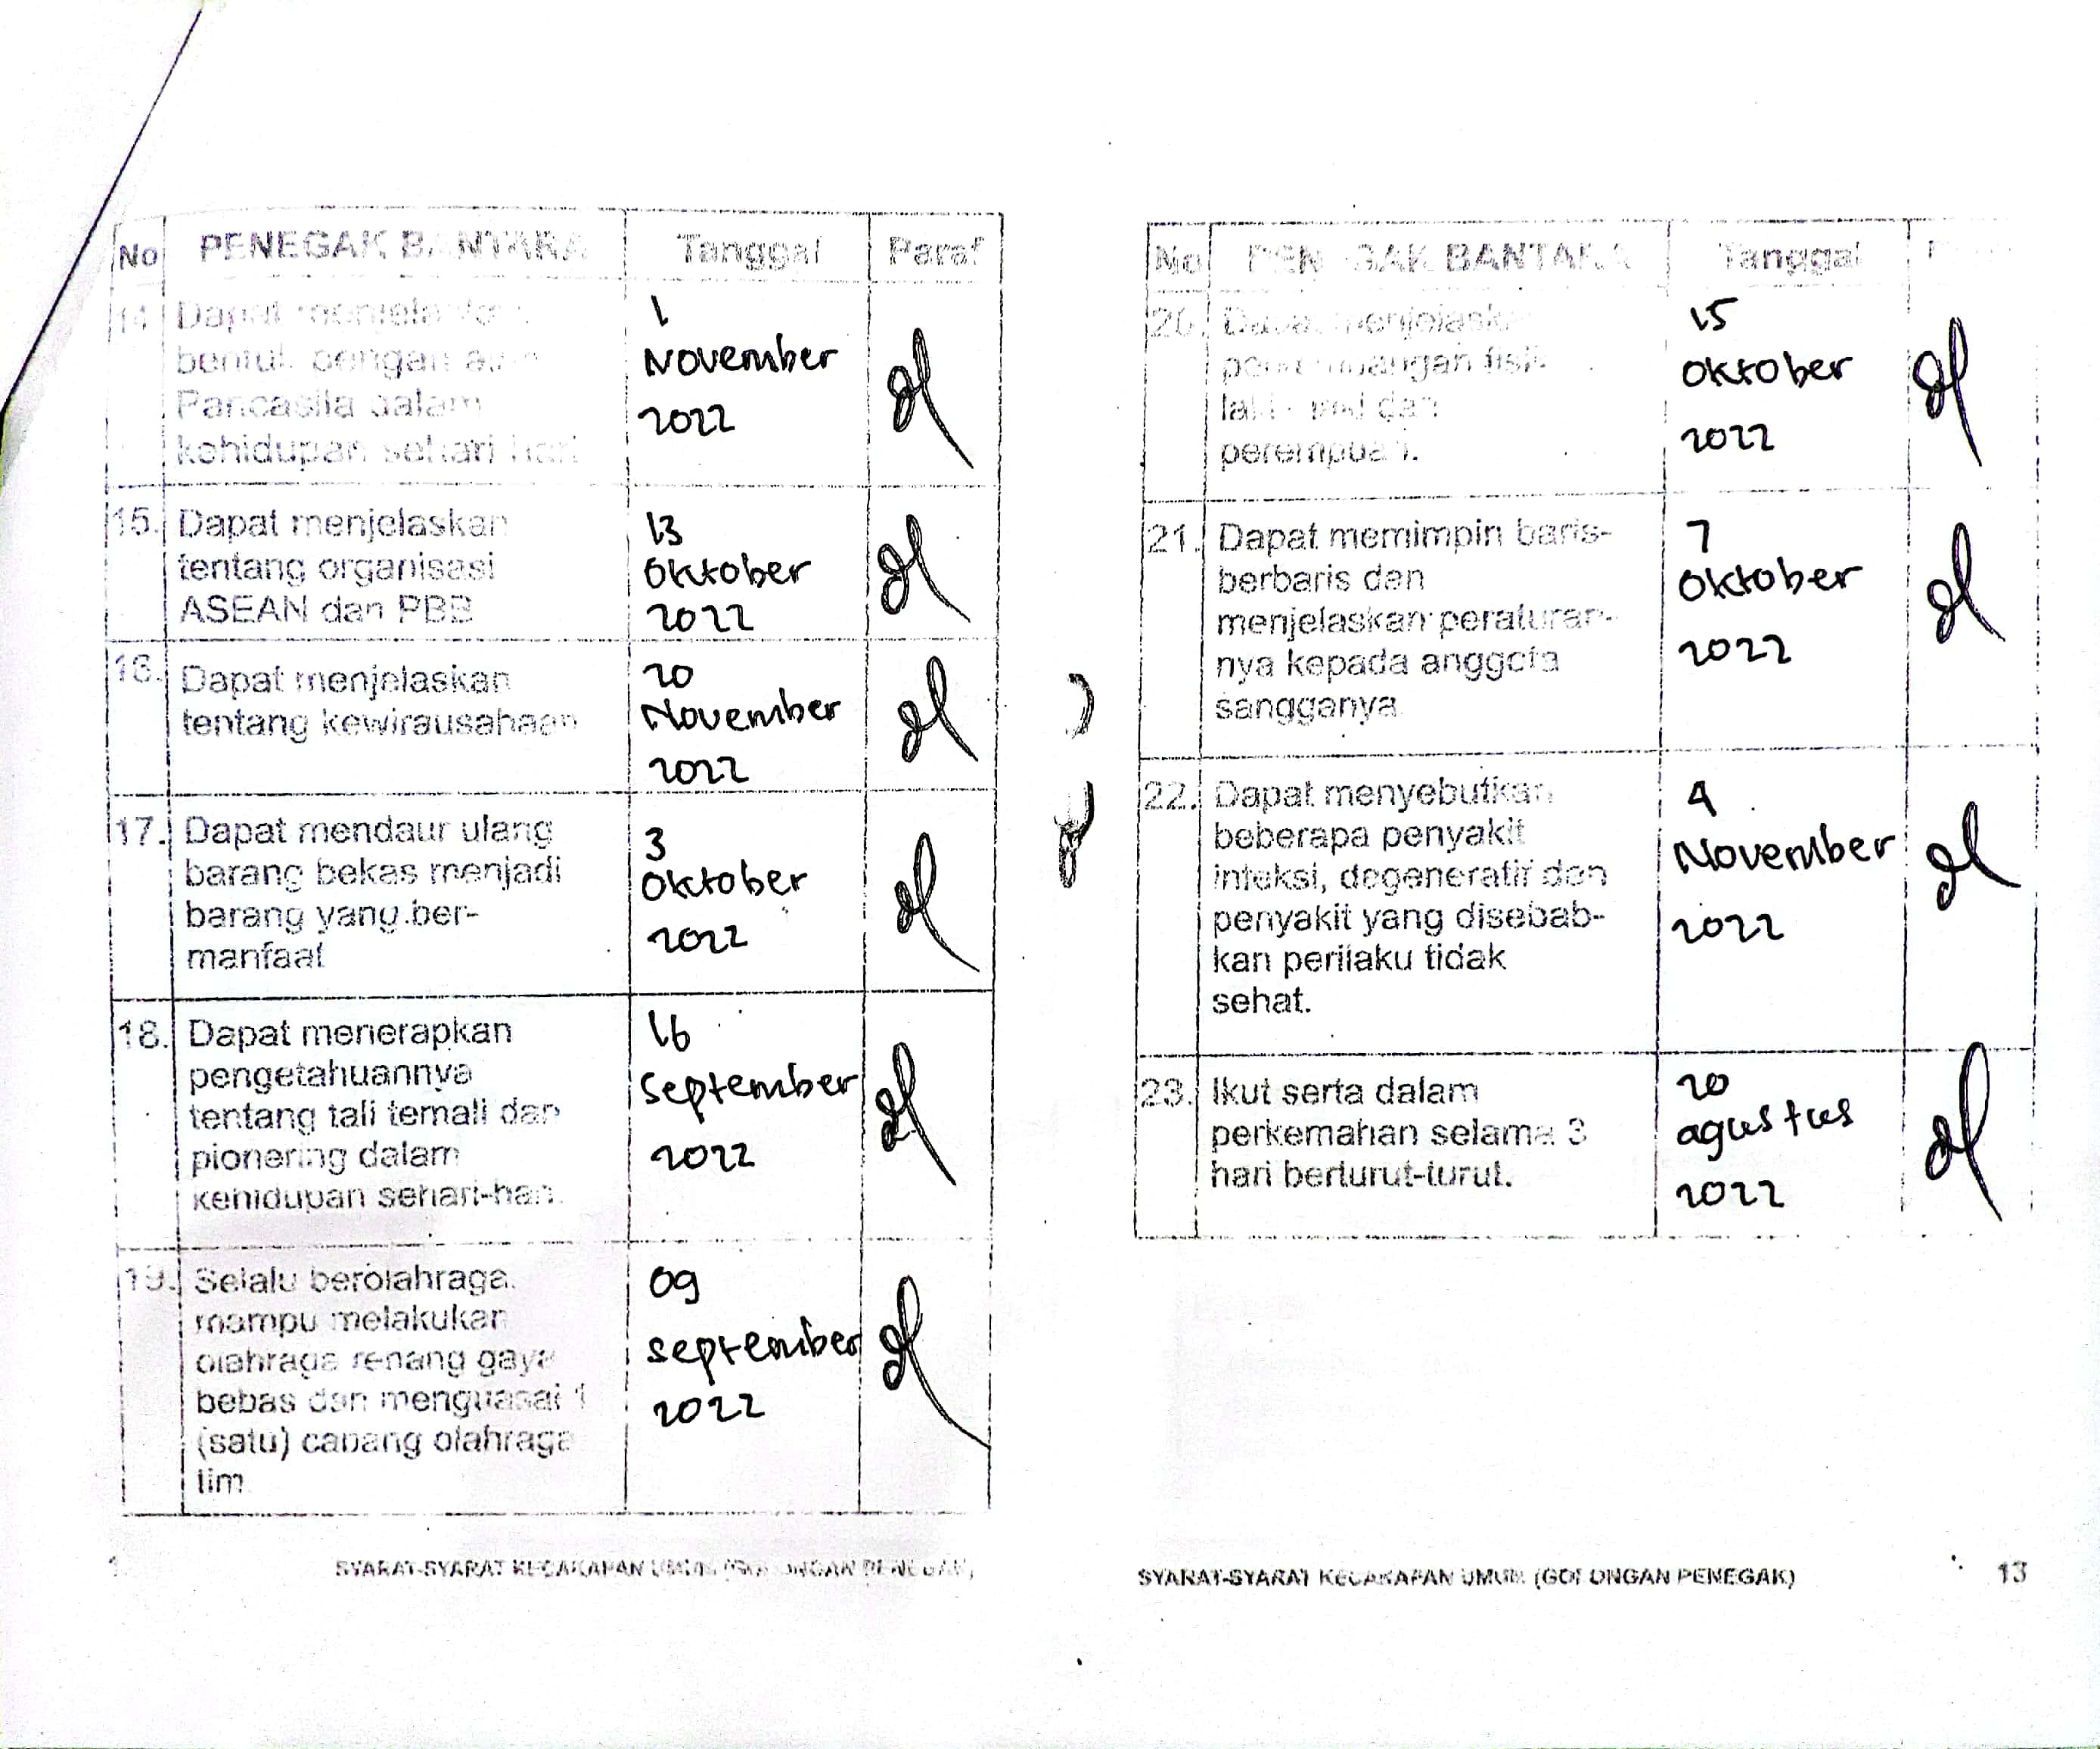 No PENEGAK BANTARA Tanggal Paraf
14. Dapat
bentuk pengamalan
Pancasila dalam
kehidupan sehari hari
1
November
2022
15. Dapat menjelaskan
tentang organisasi
ASEAN dan PBB
13
Oktober
2022
16. Dapat menjelaskan
tentang kewirausahaan
20
November
2022
17. Dapat mendaur ulang
barang bekas menjadi
barang yang ber-
manfaat
3
Oktober
2022
18. Dapat menerapkan
pengetahuannya
tentang tali temali dan
pionering dalam
kehidupan sehari-hari.
16
September
2022
19. Selalu berolahraga.
mampu melakukan
olahraga renang gaya
bebas dan menguasai 1
(satu) cabang olahraga
tim
09
September
2022
SYARAT-SYARAT KECAKAPAN UMUM (GOLONGAN PENEGAK)
No PENEGAK BANTARA Tanggal
20. Dapat menjelaskan
perkembangan fisik
laki-laki dan
perempuan.
15
Oktober
2022
21. Dapat memimpin baris-
berbaris dan
menjelaskan peraturan-
nya kepada anggota
sangganya
7
Oktober
2022
22. Dapat menyebutkan
beberapa penyakit
infeksi, degeneratif dan
penyakit yang disebab-
kan perilaku tidak
sehat.
4
November
2022
23. Ikut serta dalam
perkemahan selama 3
hari berturut-turut.
20
agustus
2022
SYARAT-SYARAT KECAKAPAN UMUM (GOLONGAN PENEGAK) 13